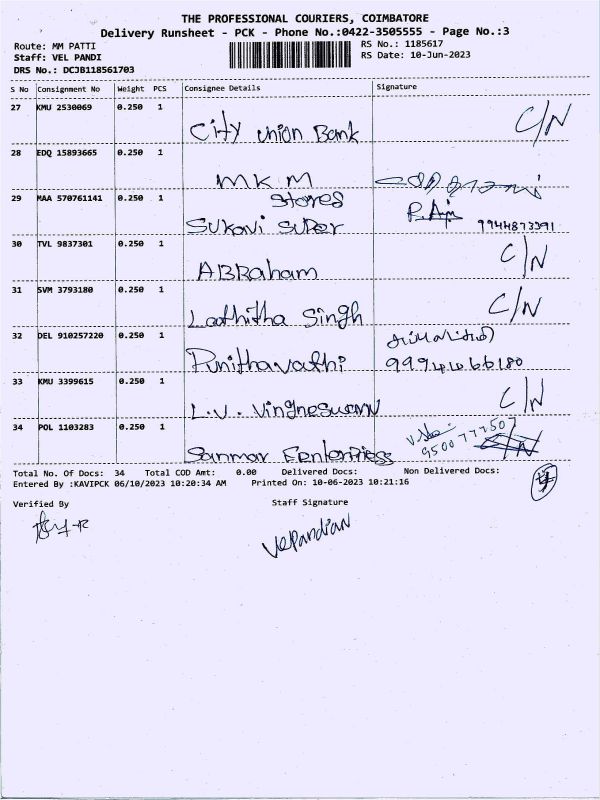 THE PROFESSIONAL COURIERS, COIMBATORE
Delivery Runsheet - PCK - Phone No.:0422-3505555 - Page No.:3
Route: MM PATTI
RS No.: 1185617
Staff: VEL PANDI
RS Date: 10-Jun-2023
DRS No.: DCJB118561703
S No Consignment No Weight PCS Consignee Details Signature
27 KMU 2530069 0.250 1 City Union Bank C/N
28 EDQ 15893665 0.250 1 MKM
29 MAA 570761141 0.250 1 Stores
Sukavi Super 9944873391
30 TVL 9837301 0.250 1 ABRaham C/N
31 SVM 3793180 0.250 1 Lathitha Singh C/N
32 DEL 910257220 0.250 1 Punithavathi 9994466180
33 KMU 3399615 0.250 1 L.V. Vinghneswaran C/N
34 POL 1103283 0.250 1 Sanmar 9500777507
Total No. Of Docs: 34 Total COD Amt: 0.00 Delivered Docs: Non Delivered Docs:
Entered By :KAVIPCK 06/10/2023 10:20:34 AM Printed On: 10-06-2023 10:21:16
Verified By Staff Signature
Velpandian